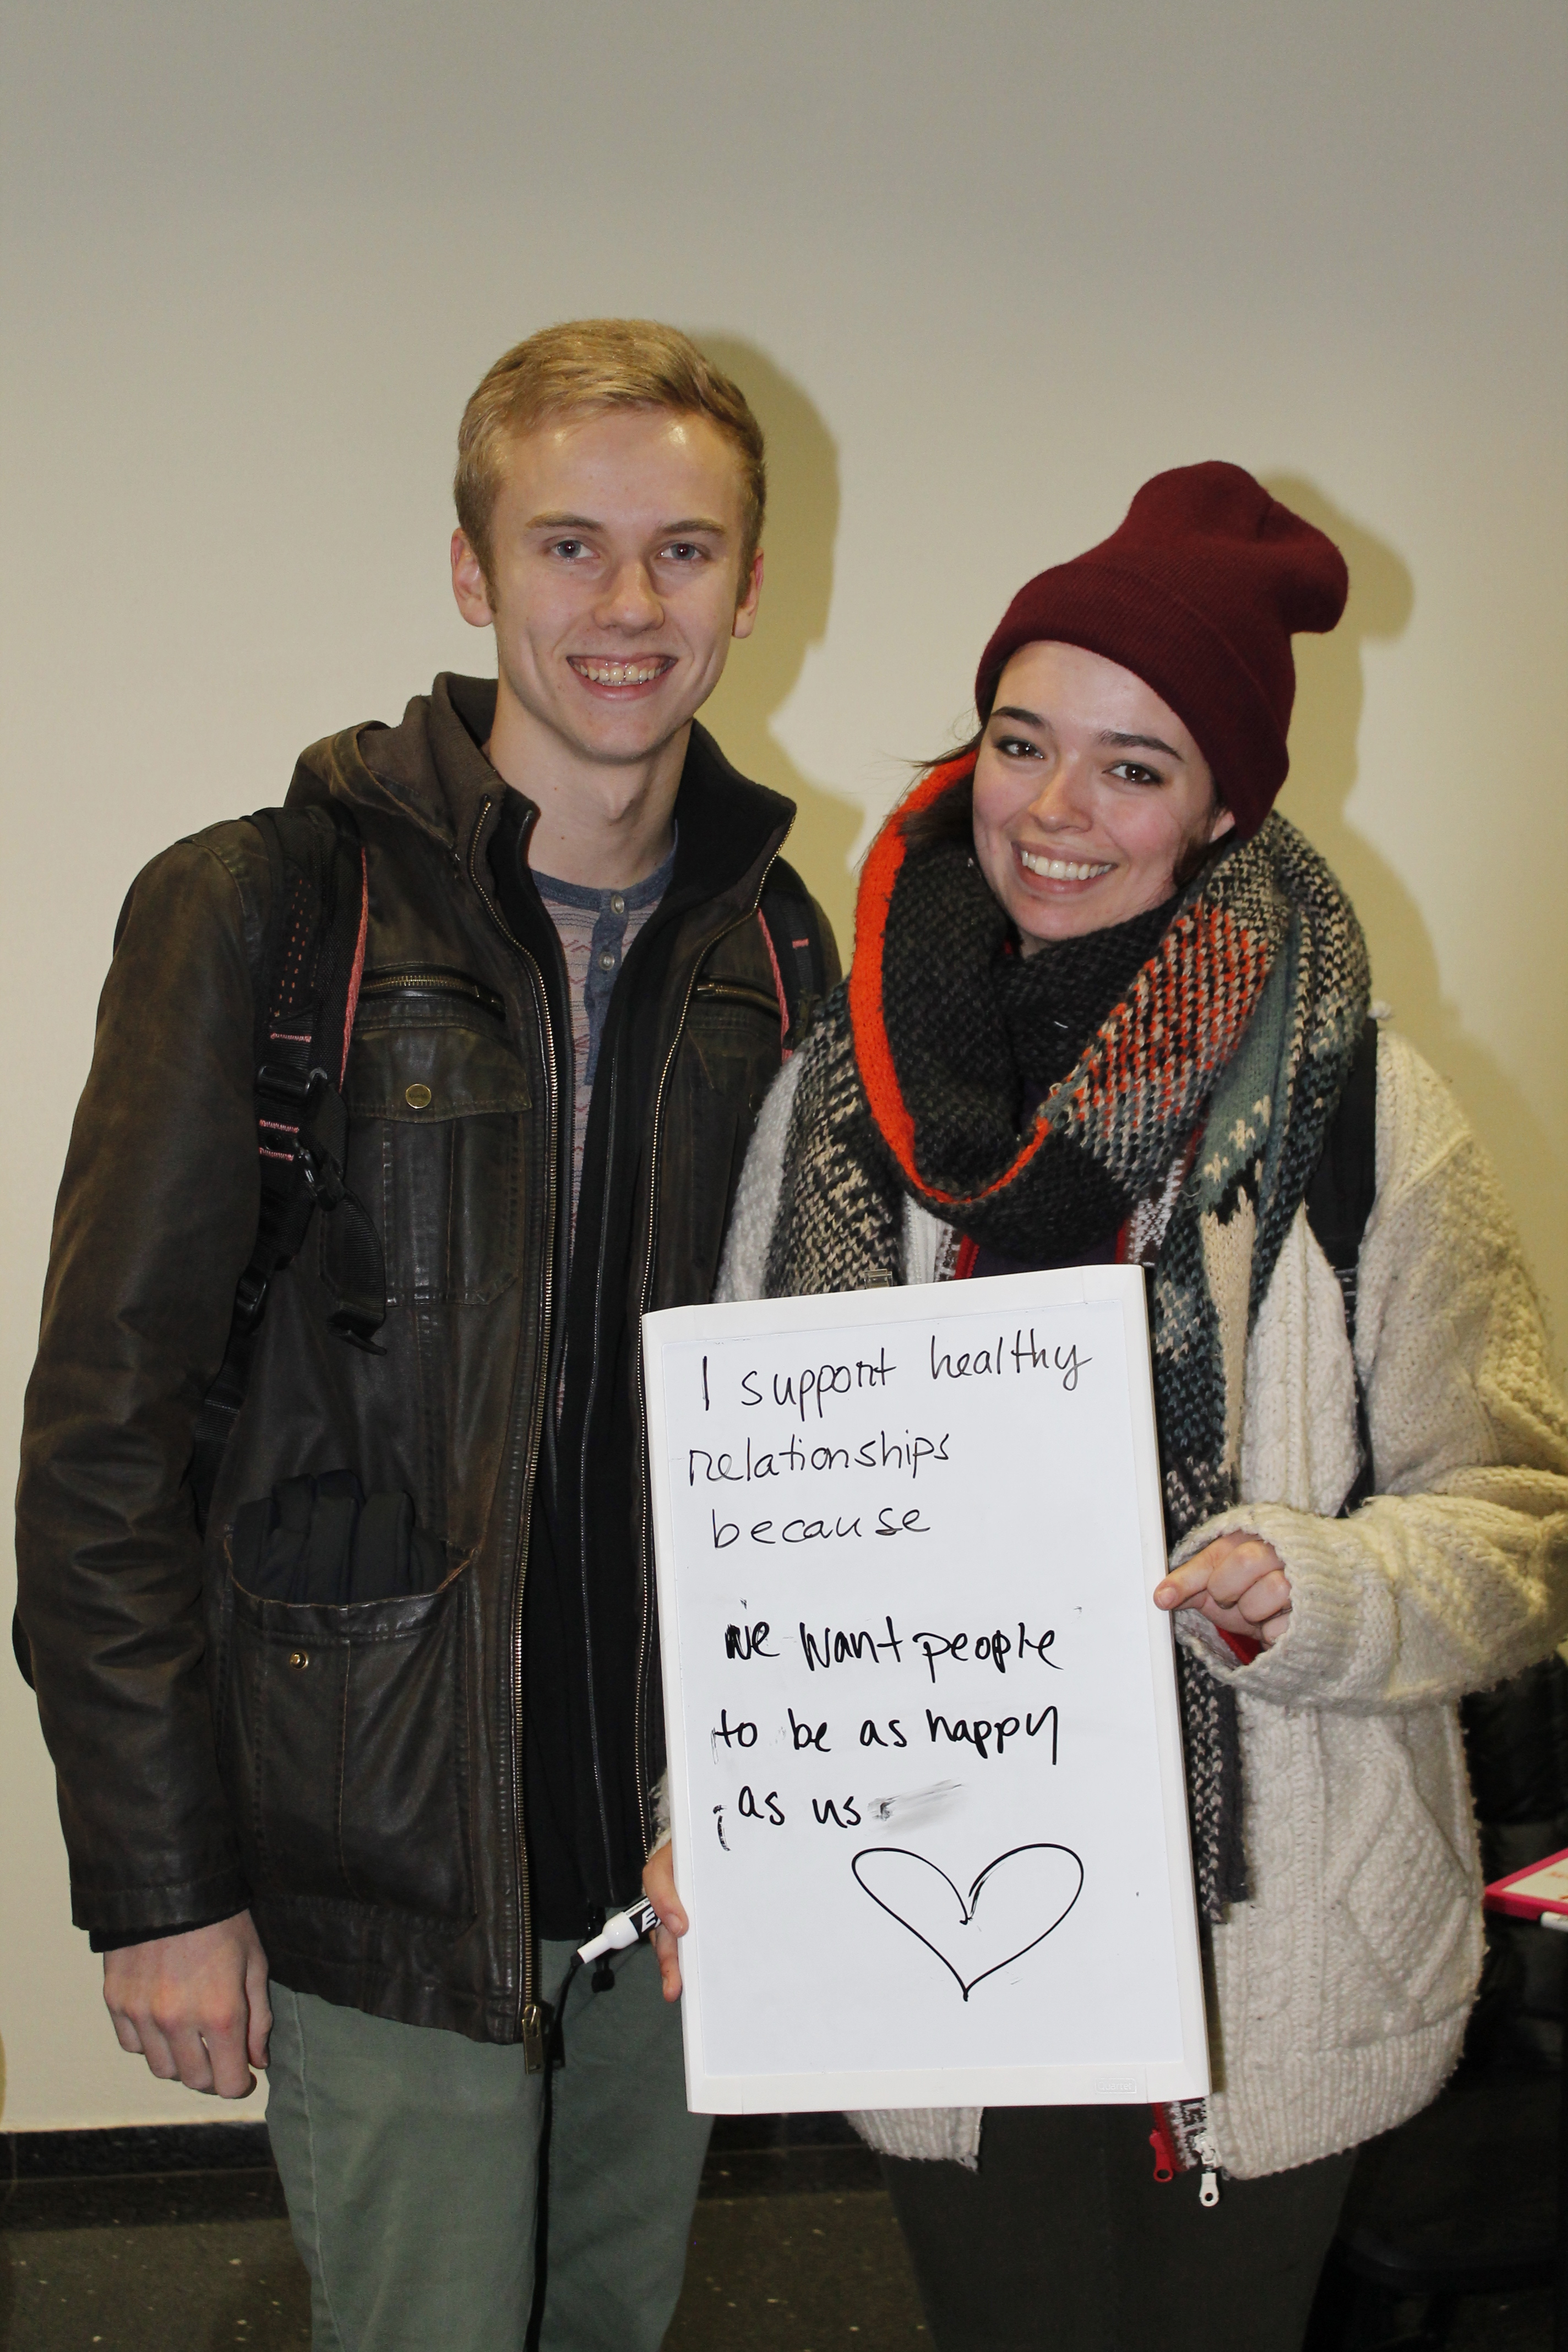 I support healthy
relationships
because
we want people
to be as happy
as us